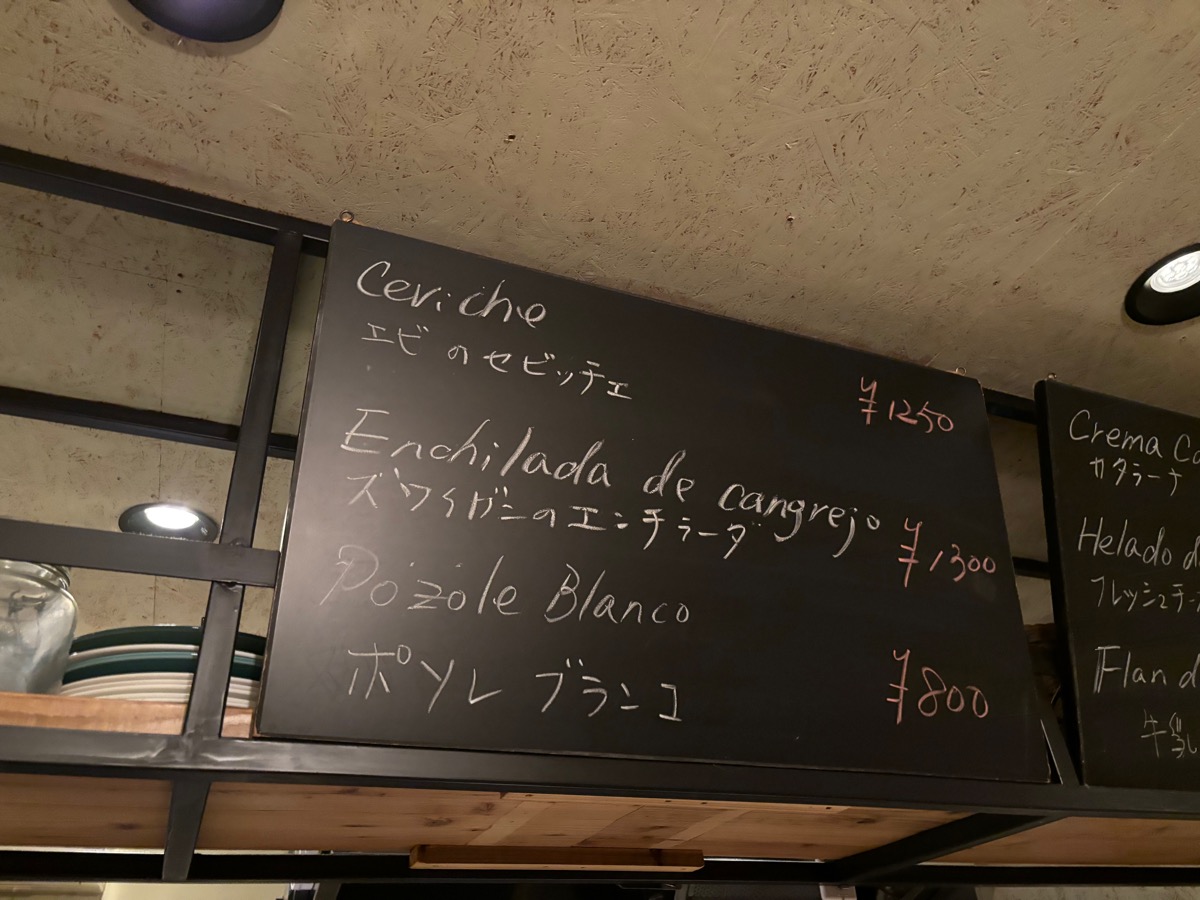 Ceviche
エビのセビッチェ
¥1250
Enchilada de cangrejo
ズワイガニのエンチラーダ
¥1300
Pozole Blanco
ポソレ ブランコ
¥800
Crema
カタラーナ
Helado
フレッシュチ
Flan d
牛乳